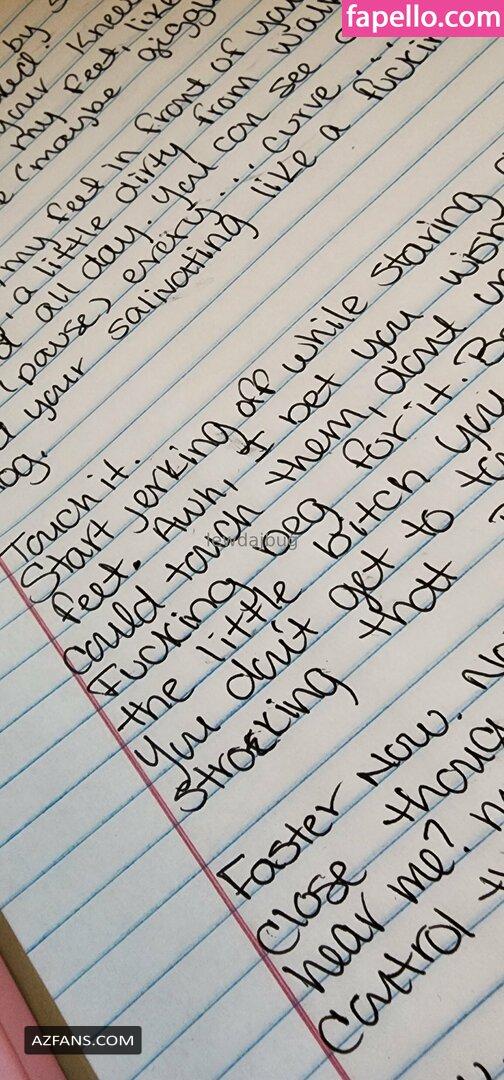 fapello.com
by s
your knees
my feet, like
e (maybe giggl
my feet in front of you
a little dirty from walk
all day. You can see
(pause) every... curve...
d your salivating like a fuckin
og.
Touch it.
Start jerking off while staring
feet. Awh, I bet you wish
could touch them, dont
Fucking beg for it. B
the little bitch you
You don't get to
stroking that
lewdajbug
Faster Now. No
close thoug
hear me?
control
AZFANS.COM